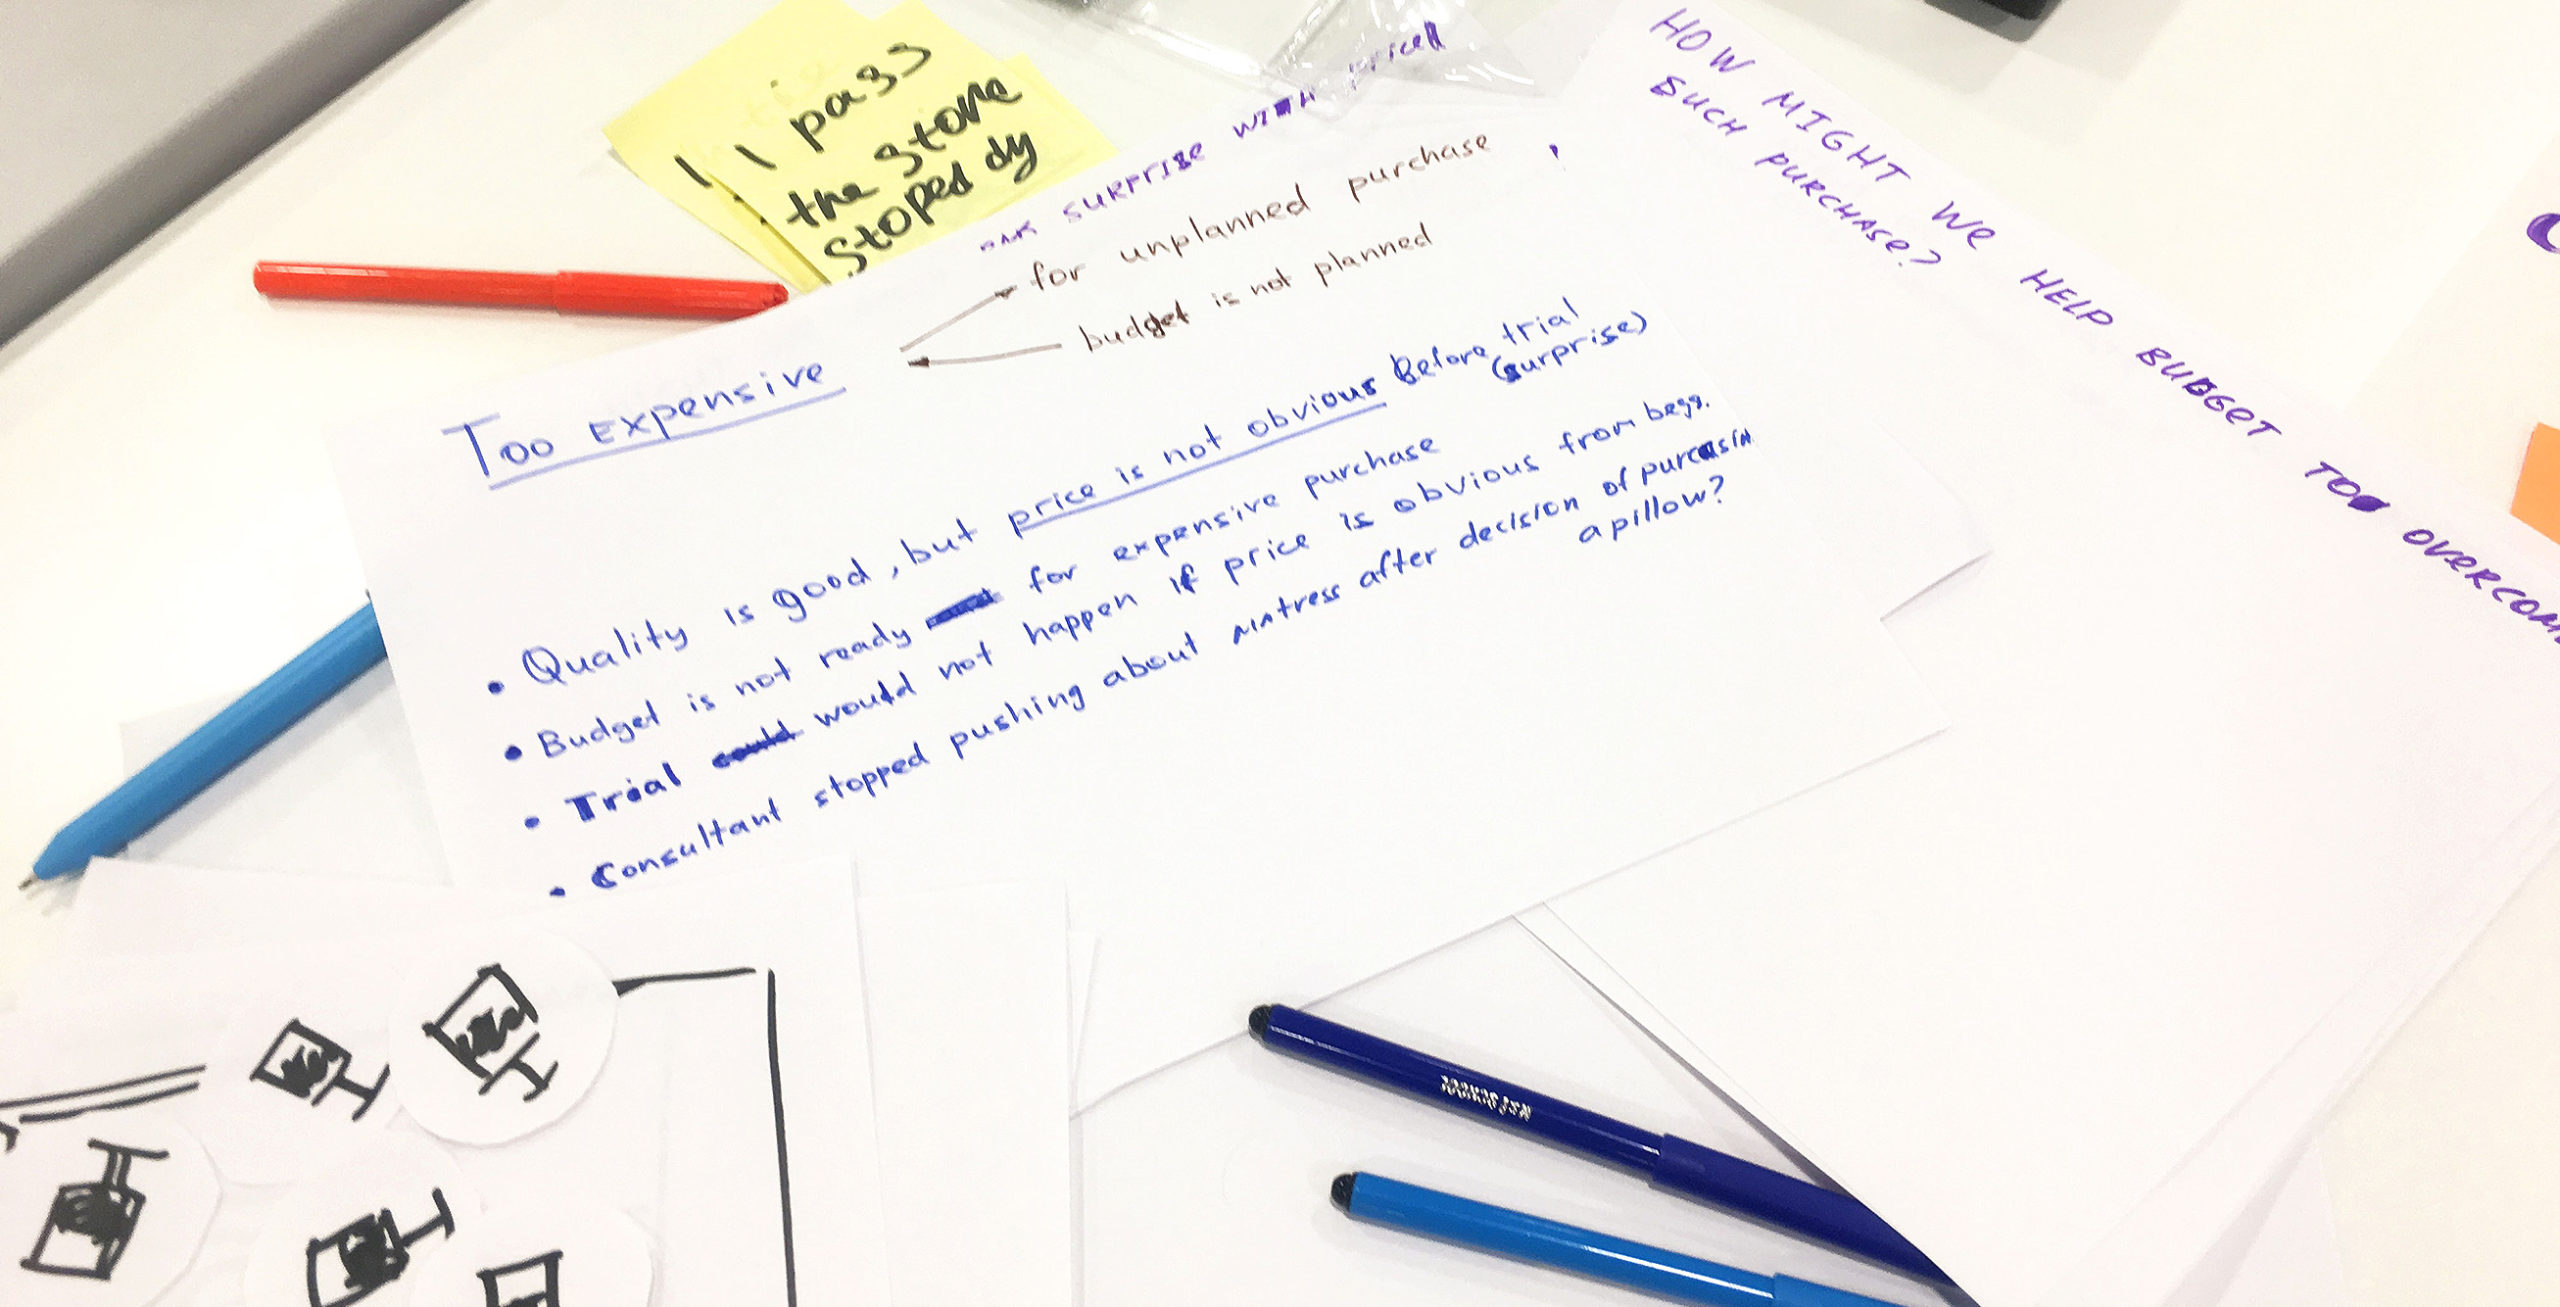 I pass
the store
stoped dy
SURPRISE WITH PRICE
HOW MIGHT WE HELP BUDGET TO OVERCOME
SUCH PURCHASE?
for unplanned purchase
budget is not planned
Too expensive
• Quality is good, but price is not obvious before trial
(surprise)
• Budget is not ready for expensive purchase
• Trial would not happen if price is obvious from begg.
• Consultant stopped pushing about matress after decision of purcasin
a pillow?